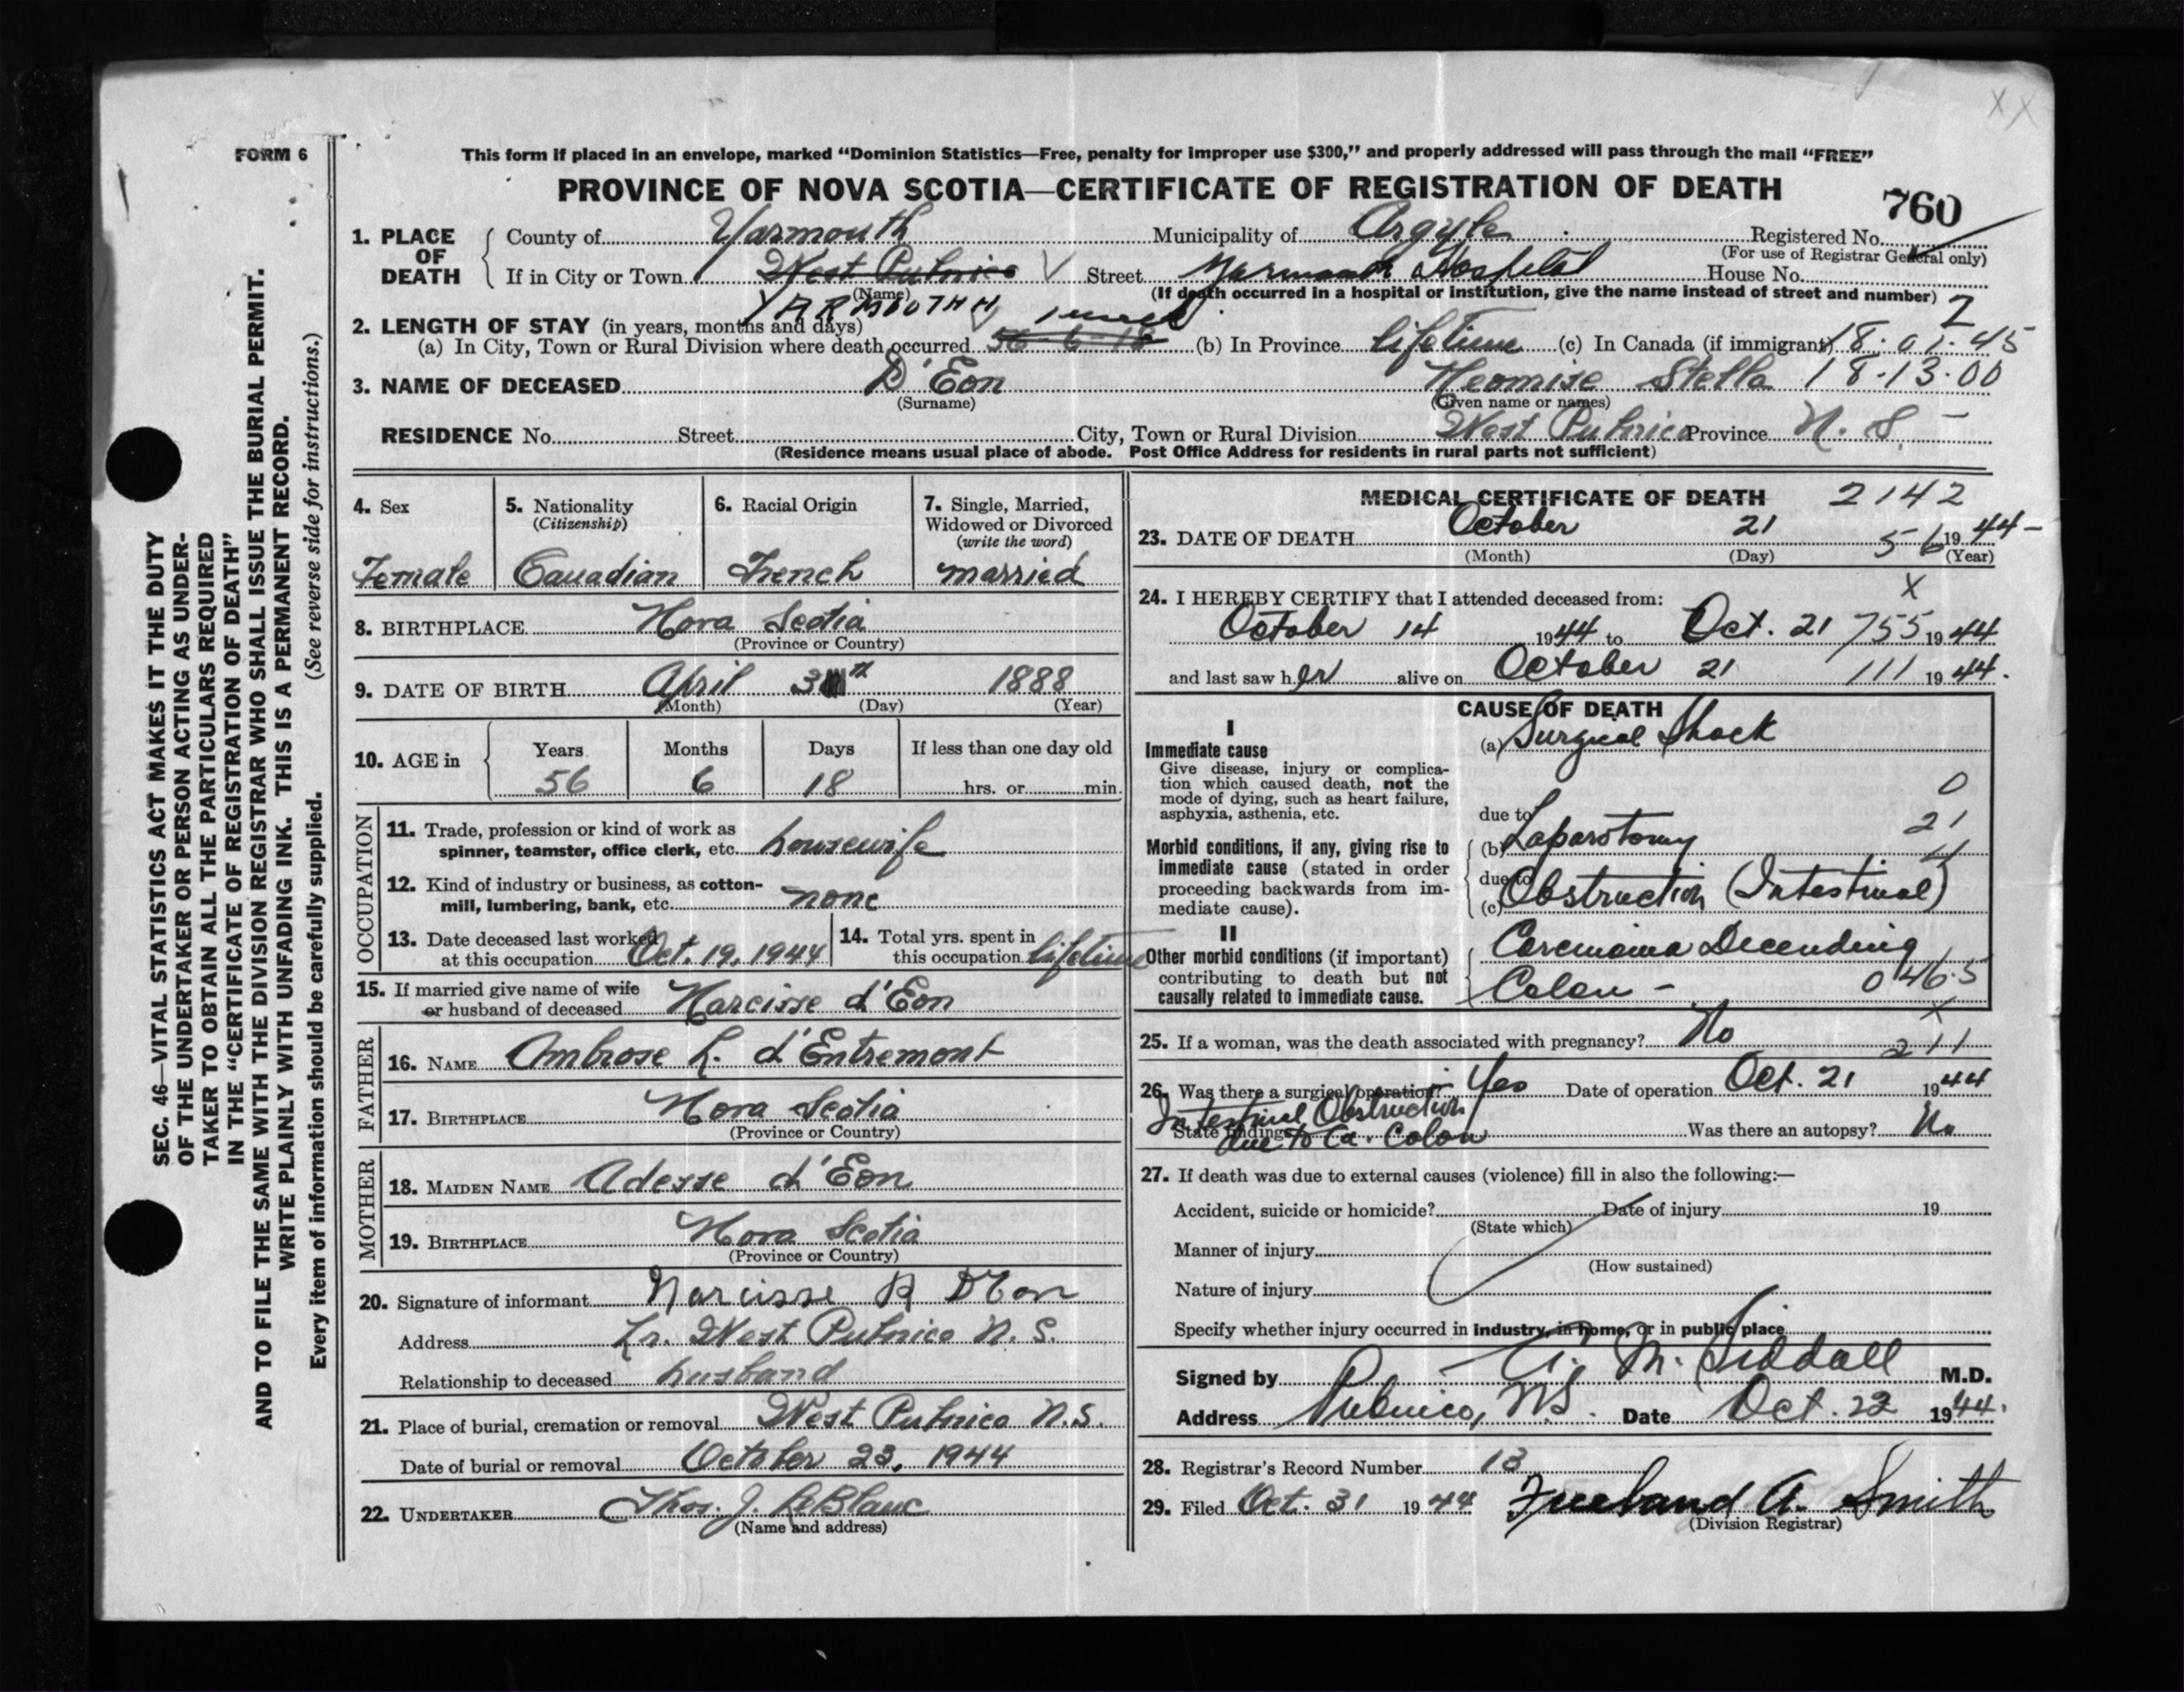 FORM 6
This form if placed in an envelope, marked “Dominion Statistics—Free, penalty for improper use $300,” and properly addressed will pass through the mail “FREE”
PROVINCE OF NOVA SCOTIA—CERTIFICATE OF REGISTRATION OF DEATH
760
1. PLACE OF DEATH County of Yarmouth Municipality of Argyle Registered No.
(For use of Registrar General only)
If in City or Town West Pubnico Street Yarmouth Hospital House No.
(Name) (If death occurred in a hospital or institution, give the name instead of street and number)
YARMOUTH
2. LENGTH OF STAY (in years, months and days) 1 week 2
(a) In City, Town or Rural Division where death occurred 56-6-18 (b) In Province lifetime (c) In Canada (if immigrant) 18.01.45
3. NAME OF DECEASED D'Eon Neomise Stella 18.13.00
(Surname) (Given name or names)
RESIDENCE No. Street City, Town or Rural Division West Pubnico Province N.S.
(Residence means usual place of abode. Post Office Address for residents in rural parts not sufficient)
4. Sex 5. Nationality (Citizenship) 6. Racial Origin 7. Single, Married, Widowed or Divorced (write the word)
Female Canadian French married
8. BIRTHPLACE Nova Scotia
(Province or Country)
9. DATE OF BIRTH April 3 1888
(Month) (Day) (Year)
10. AGE in Years Months Days If less than one day old
56 6 18 hrs. or min.
OCCUPATION
11. Trade, profession or kind of work as
spinner, teamster, office clerk, etc. housewife
12. Kind of industry or business, as cotton-
mill, lumbering, bank, etc. none
13. Date deceased last worked
at this occupation Oct. 19, 1944
14. Total yrs. spent in
this occupation lifetime
15. If married give name of wife
or husband of deceased Narcisse d'Eon
FATHER
16. NAME Ambrose L. d'Entremont
17. BIRTHPLACE Nova Scotia
(Province or Country)
MOTHER
18. MAIDEN NAME Adesse d'Eon
19. BIRTHPLACE Nova Scotia
(Province or Country)
20. Signature of informant Narcisse A D'Eon
Address Lr. West Pubnico N.S.
Relationship to deceased husband
21. Place of burial, cremation or removal West Pubnico N.S.
Date of burial or removal October 23, 1944
22. UNDERTAKER Thos. J. LeBlanc
(Name and address)
MEDICAL CERTIFICATE OF DEATH 2142
23. DATE OF DEATH October 21 56 1944
(Month) (Day) (Year)
24. I HEREBY CERTIFY that I attended deceased from: X
October 14 1944 to Oct. 21 755 1944
and last saw her alive on October 21 111 1944.
CAUSE OF DEATH
I
Immediate cause (a) Surgical Shock
Give disease, injury or complica-
tion which caused death, not the
mode of dying, such as heart failure,
asphyxia, asthenia, etc.
0
due to
21
Morbid conditions, if any, giving rise to (b) Laparotomy
immediate cause (stated in order
due to
proceeding backwards from im-
mediate cause). (c) Obstruction (Intestinal)
II
Other morbid conditions (if important) Carcinoma Decending
contributing to death but not
causally related to immediate cause. Colon - 046.5
X
25. If a woman, was the death associated with pregnancy? No 211
26. Was there a surgical operation? Yes Date of operation Oct. 21 1944
Intestinal Obstruction
State findings due to Ca. Colon Was there an autopsy? No
27. If death was due to external causes (violence) fill in also the following:—
Accident, suicide or homicide? Date of injury 19
(State which)
Manner of injury
(How sustained)
Nature of injury
Specify whether injury occurred in industry, in home, or in public place
Signed by A. M. Siddall M.D.
Address Pubnico, N.S. Date Oct. 22 1944.
28. Registrar's Record Number 13
29. Filed Oct. 31 1944 Freeland A. Smith
(Division Registrar)
SEC. 46—VITAL STATISTICS ACT MAKES IT THE DUTY
OF THE UNDERTAKER OR PERSON ACTING AS UNDER-
TAKER TO OBTAIN ALL THE PARTICULARS REQUIRED
IN THE “CERTIFICATE OF REGISTRATION OF DEATH”
AND TO FILE THE SAME WITH THE DIVISION REGISTRAR WHO SHALL ISSUE THE BURIAL PERMIT.
WRITE PLAINLY WITH UNFADING INK. THIS IS A PERMANENT RECORD.
Every item of information should be carefully supplied. (See reverse side for instructions.)
XX